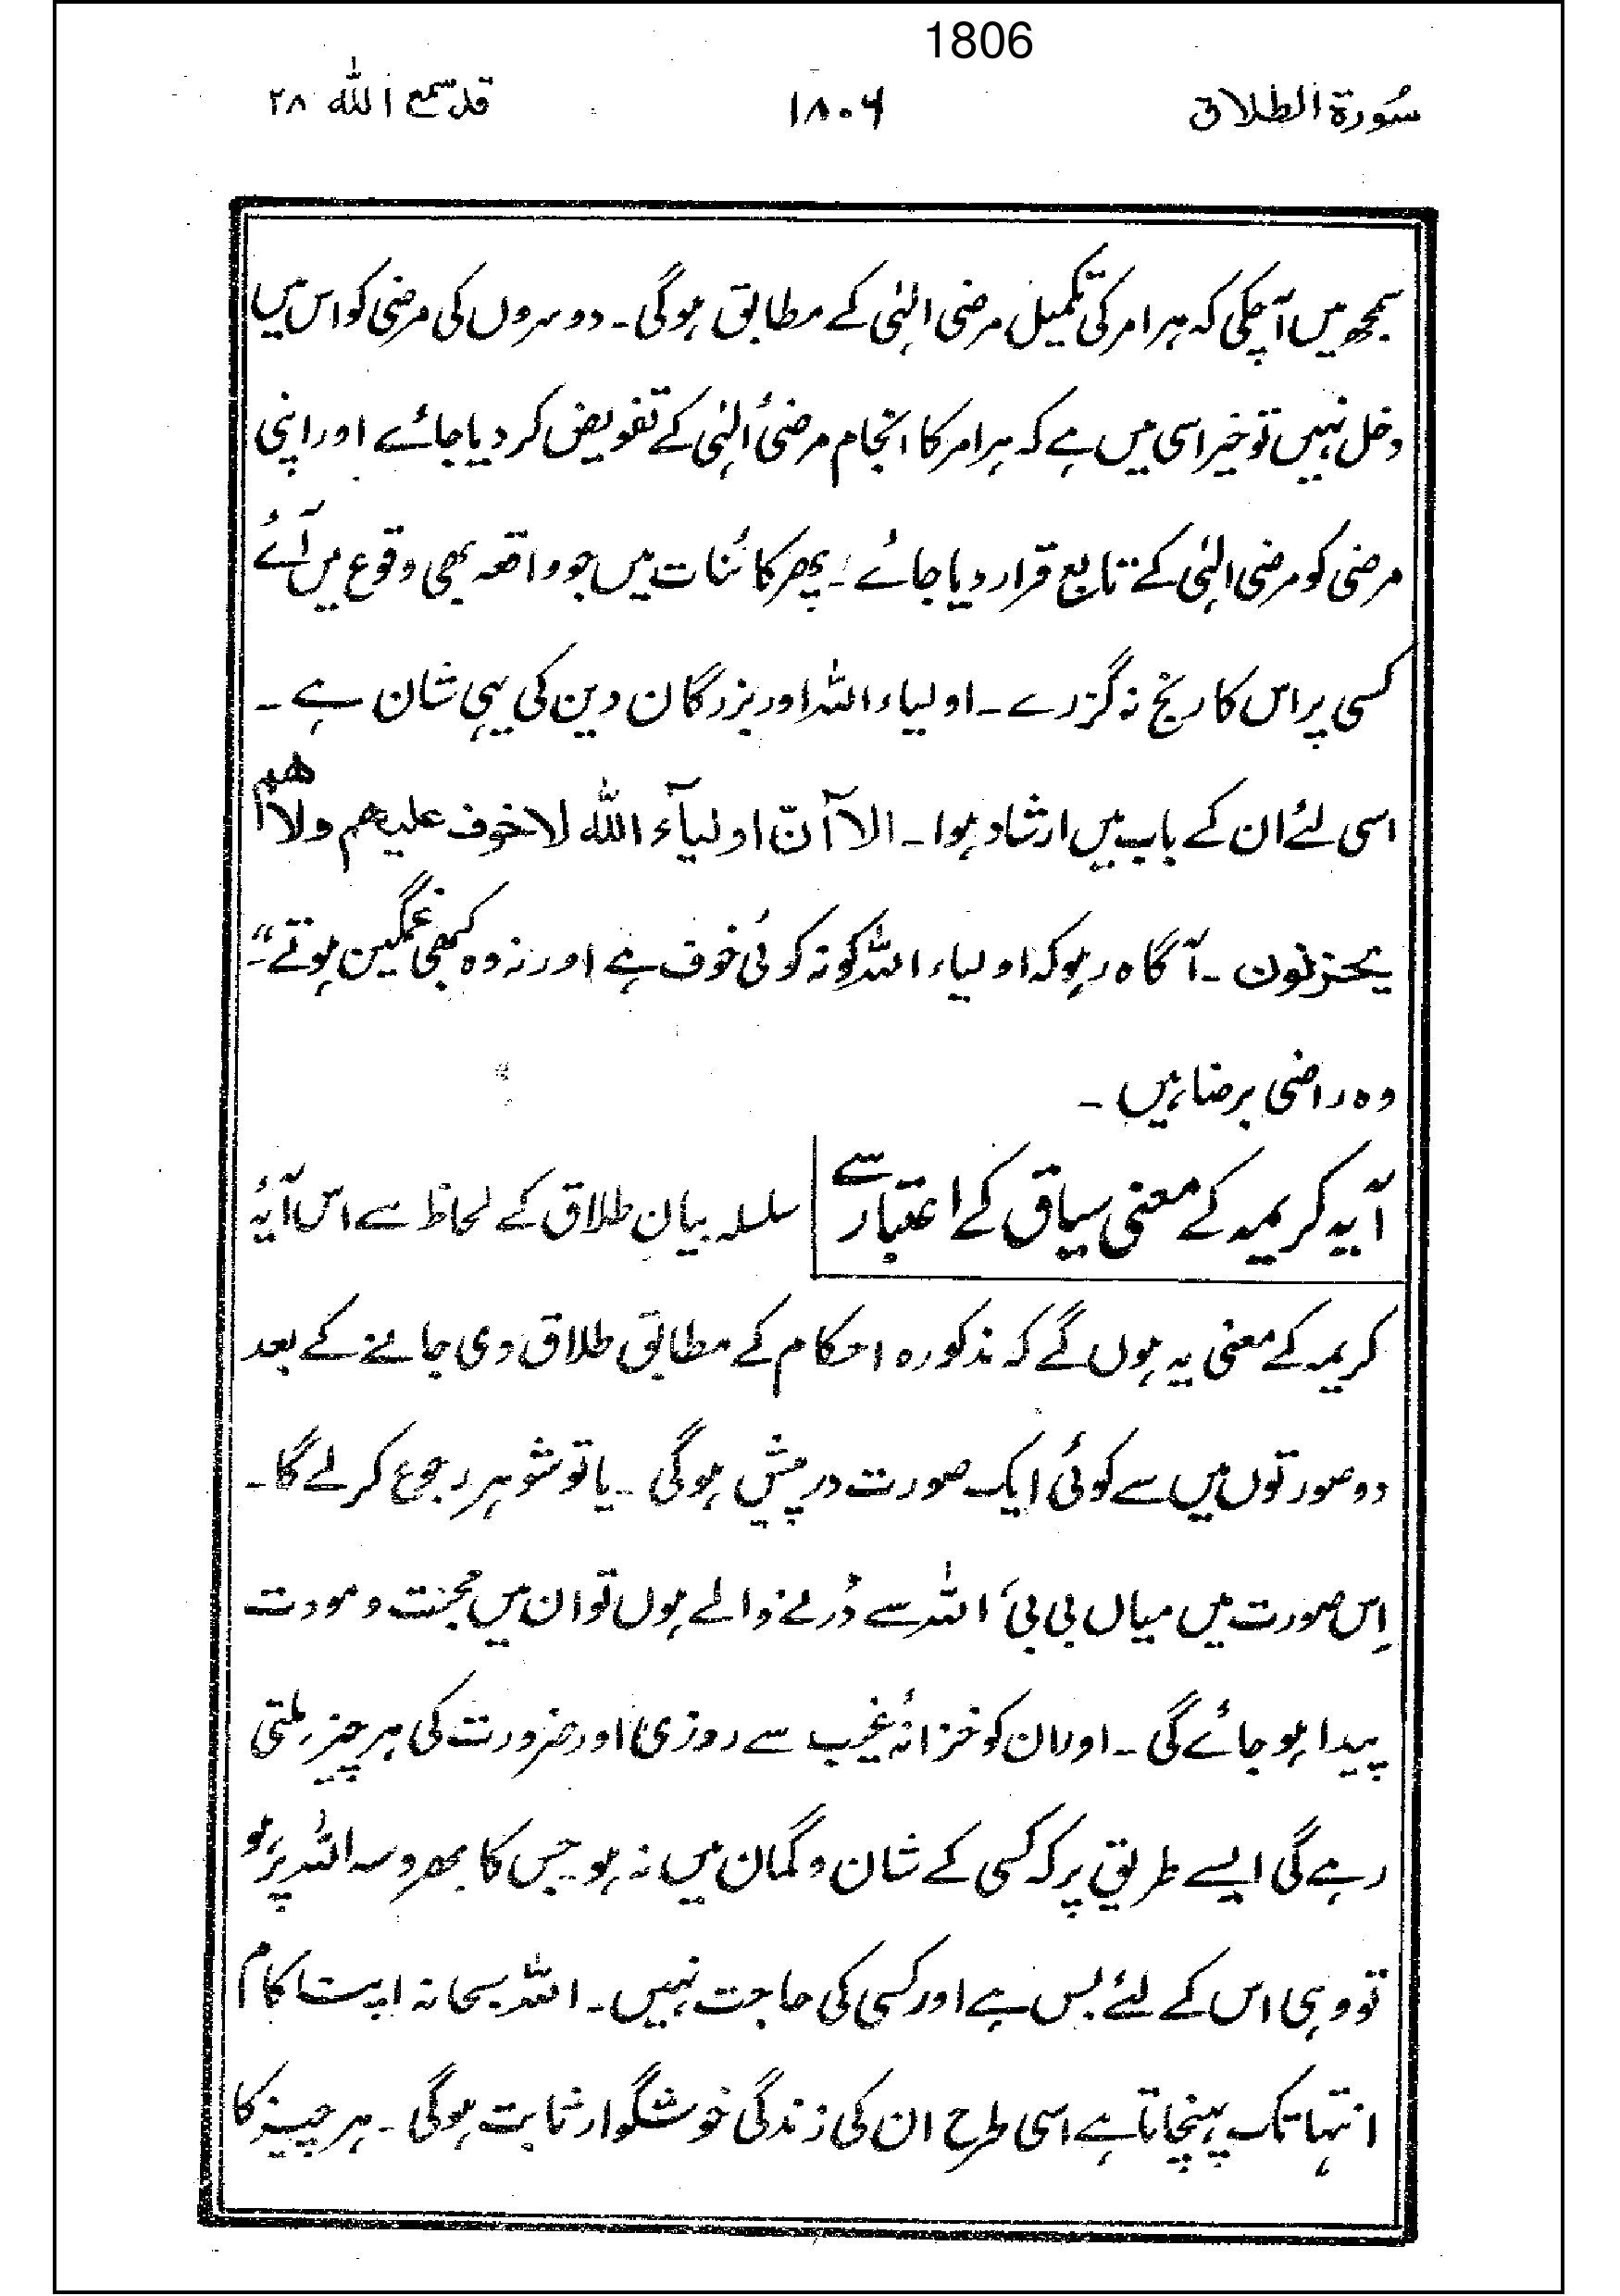 1806
سُورۃ الطلاق ۱۸۰۶ قد سمع اللہ ۲۸
سمجھ میں آچکی کہ ہر امر کی تکمیل مرضی الہٰی کے مطابق ہوگی۔ دوسروں کی مرضی کو اس میں
دخل نہیں تو خیر اسی میں ہے کہ ہر امر کا انجام مرضیٔ الہٰی کے تفویض کر دیا جائے اور اپنی
مرضی کو مرضی الہٰی کے تابع قرار دیا جائے۔ پھر کائنات میں جو واقعہ بھی وقوع میں آئے
کسی پر اس کا رنج نہ گزرے۔ اولیاء اللہ اور بزرگان دین کی یہی شان ہے۔
اسی لئے ان کے باب میں ارشاد ہوا۔ الا آنّ اولیآء اللہ لا خوف علیھم ولا ھم
یحزنون۔ آگاہ رہو کہ اولیاء اللہ کو نہ کوئی خوف ہے اور نہ وہ کبھی غمگین ہوتے۔"
وہ راضی برضا ہیں۔
آیہ کریمہ کے معنی سیاق کے اعتبار سے سلسلہ بیان طلاق کے لحاظ سے اس آیۂ
کریمہ کے معنی یہ ہوں گے کہ مذکورہ احکام کے مطابق طلاق دی جانے کے بعد
دو صورتوں میں سے کوئی ایک صورت درپیش ہوگی۔ یا تو شوہر رجوع کر لے گا۔
اِس صورت میں میاں بی بی اللہ سے ڈرنے والے ہوں تو ان میں محبت و مودت
پیدا ہو جائے گی۔ اور ان کو خزانۂ غیب سے روزی اور ضرورت کی ہر چیز ملتی
رہے گی ایسے طریق پر کہ کسی کے شان و گمان میں نہ ہو جس کا بھروسہ اللہ پر ہو
تو وہی اس کے لئے بس ہے اور کسی کی حاجت نہیں۔ اللہ سبحانہ اپنا کام
انتہا تک پہنچاتا ہے اسی طرح ان کی زندگی خوشگوار ثابت ہوگی۔ ہر چیز کا